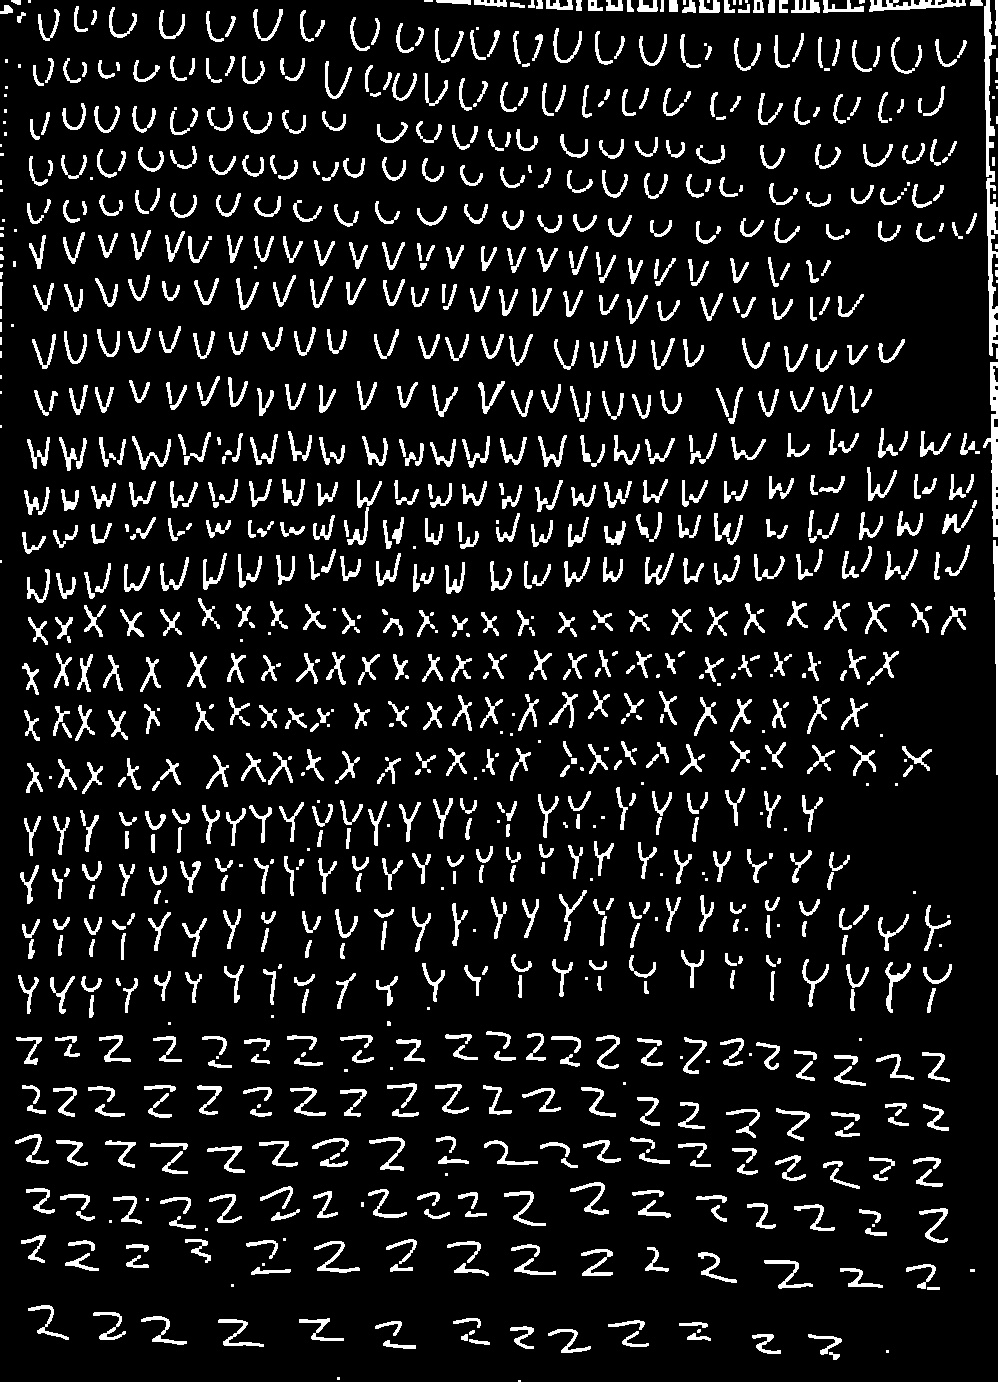 U U U U U U U U U U U U U U U U U U U U U U
U U U U U U U U U U U U U U U U U U U U U U U U
U U U U U U U U U U U U U U U U U U U U U U U U
U U U U U U U U U U U U U U U U U U U U U U U U U
U U U U U U U U U U U U U U U U U U U U U U U U
V V V V V V V V V V V V V V V V V V V V V V V V V
V V V V V V V V V V V V V V V V V V V V V V V V V
V V V V V V V V V V V V V V V V V V V V V V V V V
V V V V V V V V V V V V V V V V V V V V V V V V V
W W W W W W W W W W W W W W W W W W W W W W W W W
W W W W W W W W W W W W W W W W W W W W W W W W W
W W W W W W W W W W W W W W W W W W W W W W W W W
W W W W W W W W W W W W W W W W W W W W W W W W W
X X X X X X X X X X X X X X X X X X X X X X X X X X
X X X X X X X X X X X X X X X X X X X X X X X X X X
X X X X X X X X X X X X X X X X X X X X X X X X X
X X X X X X X X X X X X X X X X X X X X X X X X X
Y Y Y Y Y Y Y Y Y Y Y Y Y Y Y Y Y Y Y Y Y Y Y Y Y
Y Y Y Y Y Y Y Y Y Y Y Y Y Y Y Y Y Y Y Y Y Y Y Y Y
Y Y Y Y Y Y Y Y Y Y Y Y Y Y Y Y Y Y Y Y Y Y Y Y Y Y
Y Y Y Y Y Y Y Y Y Y Y Y Y Y Y Y Y Y Y Y Y Y Y Y
Z Z Z Z Z Z Z Z Z Z Z Z Z Z Z Z Z Z Z Z Z Z
Z Z Z Z Z Z Z Z Z Z Z Z Z Z Z Z Z Z Z Z
Z Z Z Z Z Z Z Z Z Z Z Z Z Z Z Z Z Z Z
Z Z Z Z Z Z Z Z Z Z Z Z Z Z Z Z Z Z
Z Z Z Z Z Z Z Z Z Z Z Z Z Z Z
Z Z Z Z Z Z Z Z Z Z Z Z Z